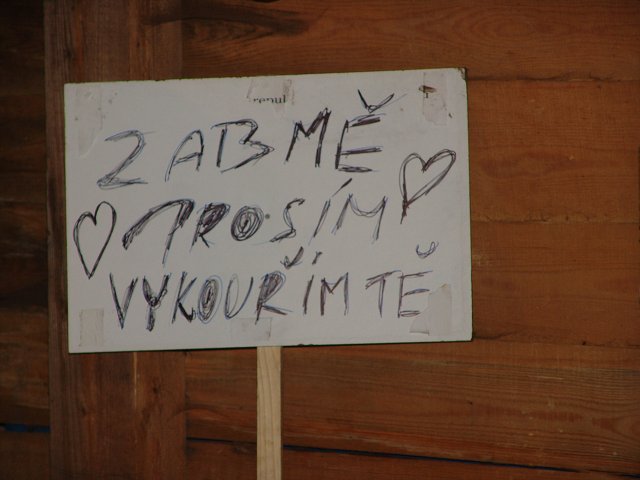 repul
ZAB MĚ
PROSÍM
VYKOUŘÍM TĚ